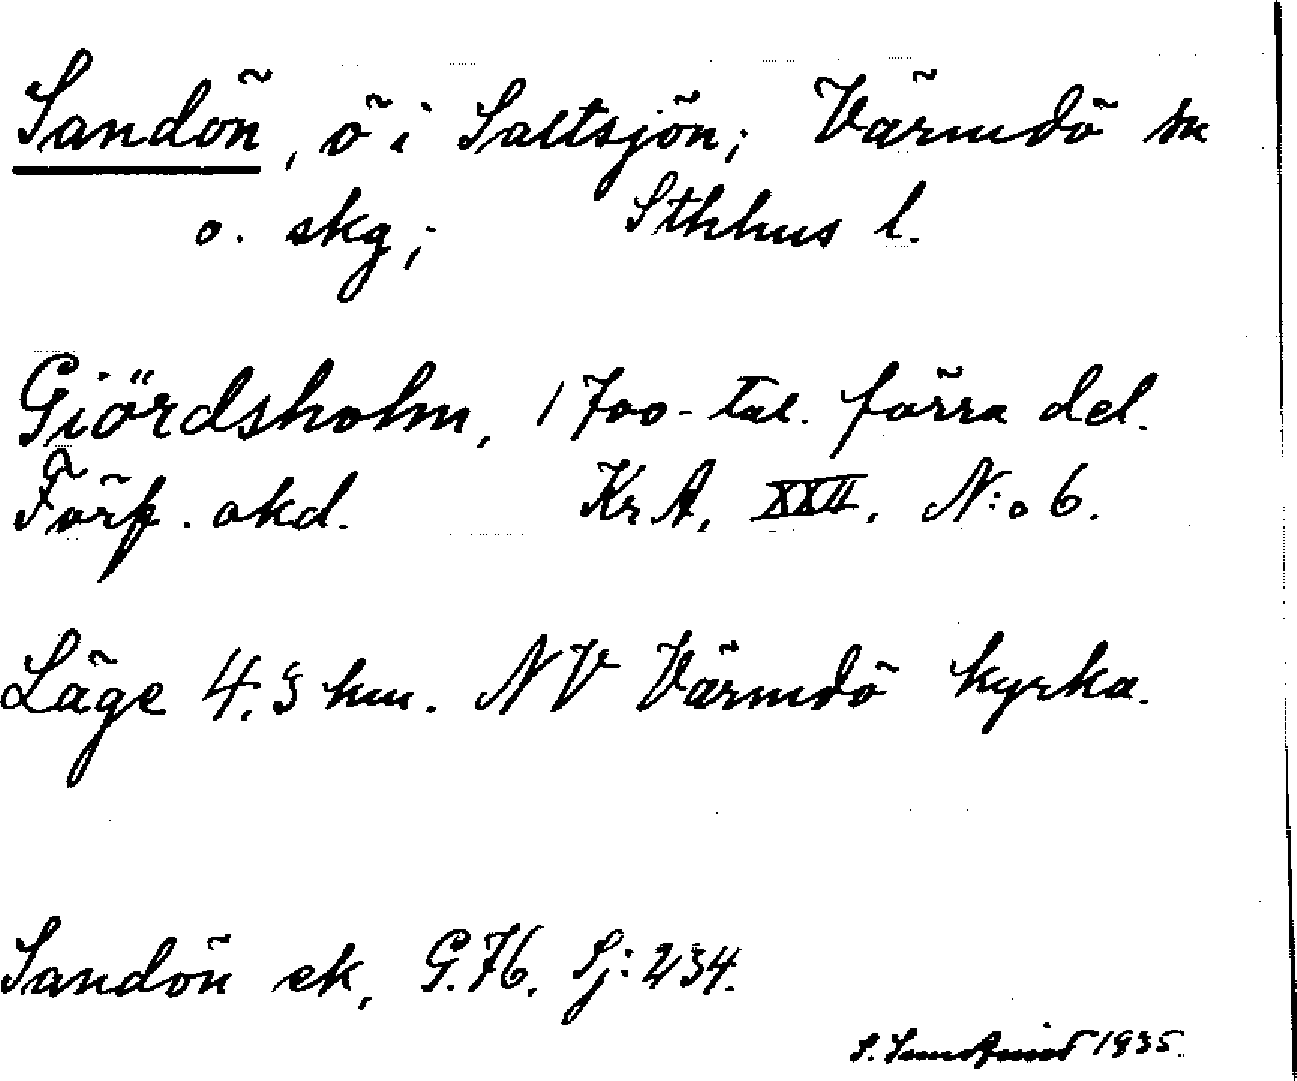 Sandön, ö i Saltsjön; Värmdö sn
o. skg; Sthhus l.
Giördsholm, 1700-tal. förra del.
Förf. okd. Kr A, XXII. N:o 6.
Läge 4.3 km. NV Värmdö kyrka.
Sandön ek, G.76. Sj: 234.
S. 1935.